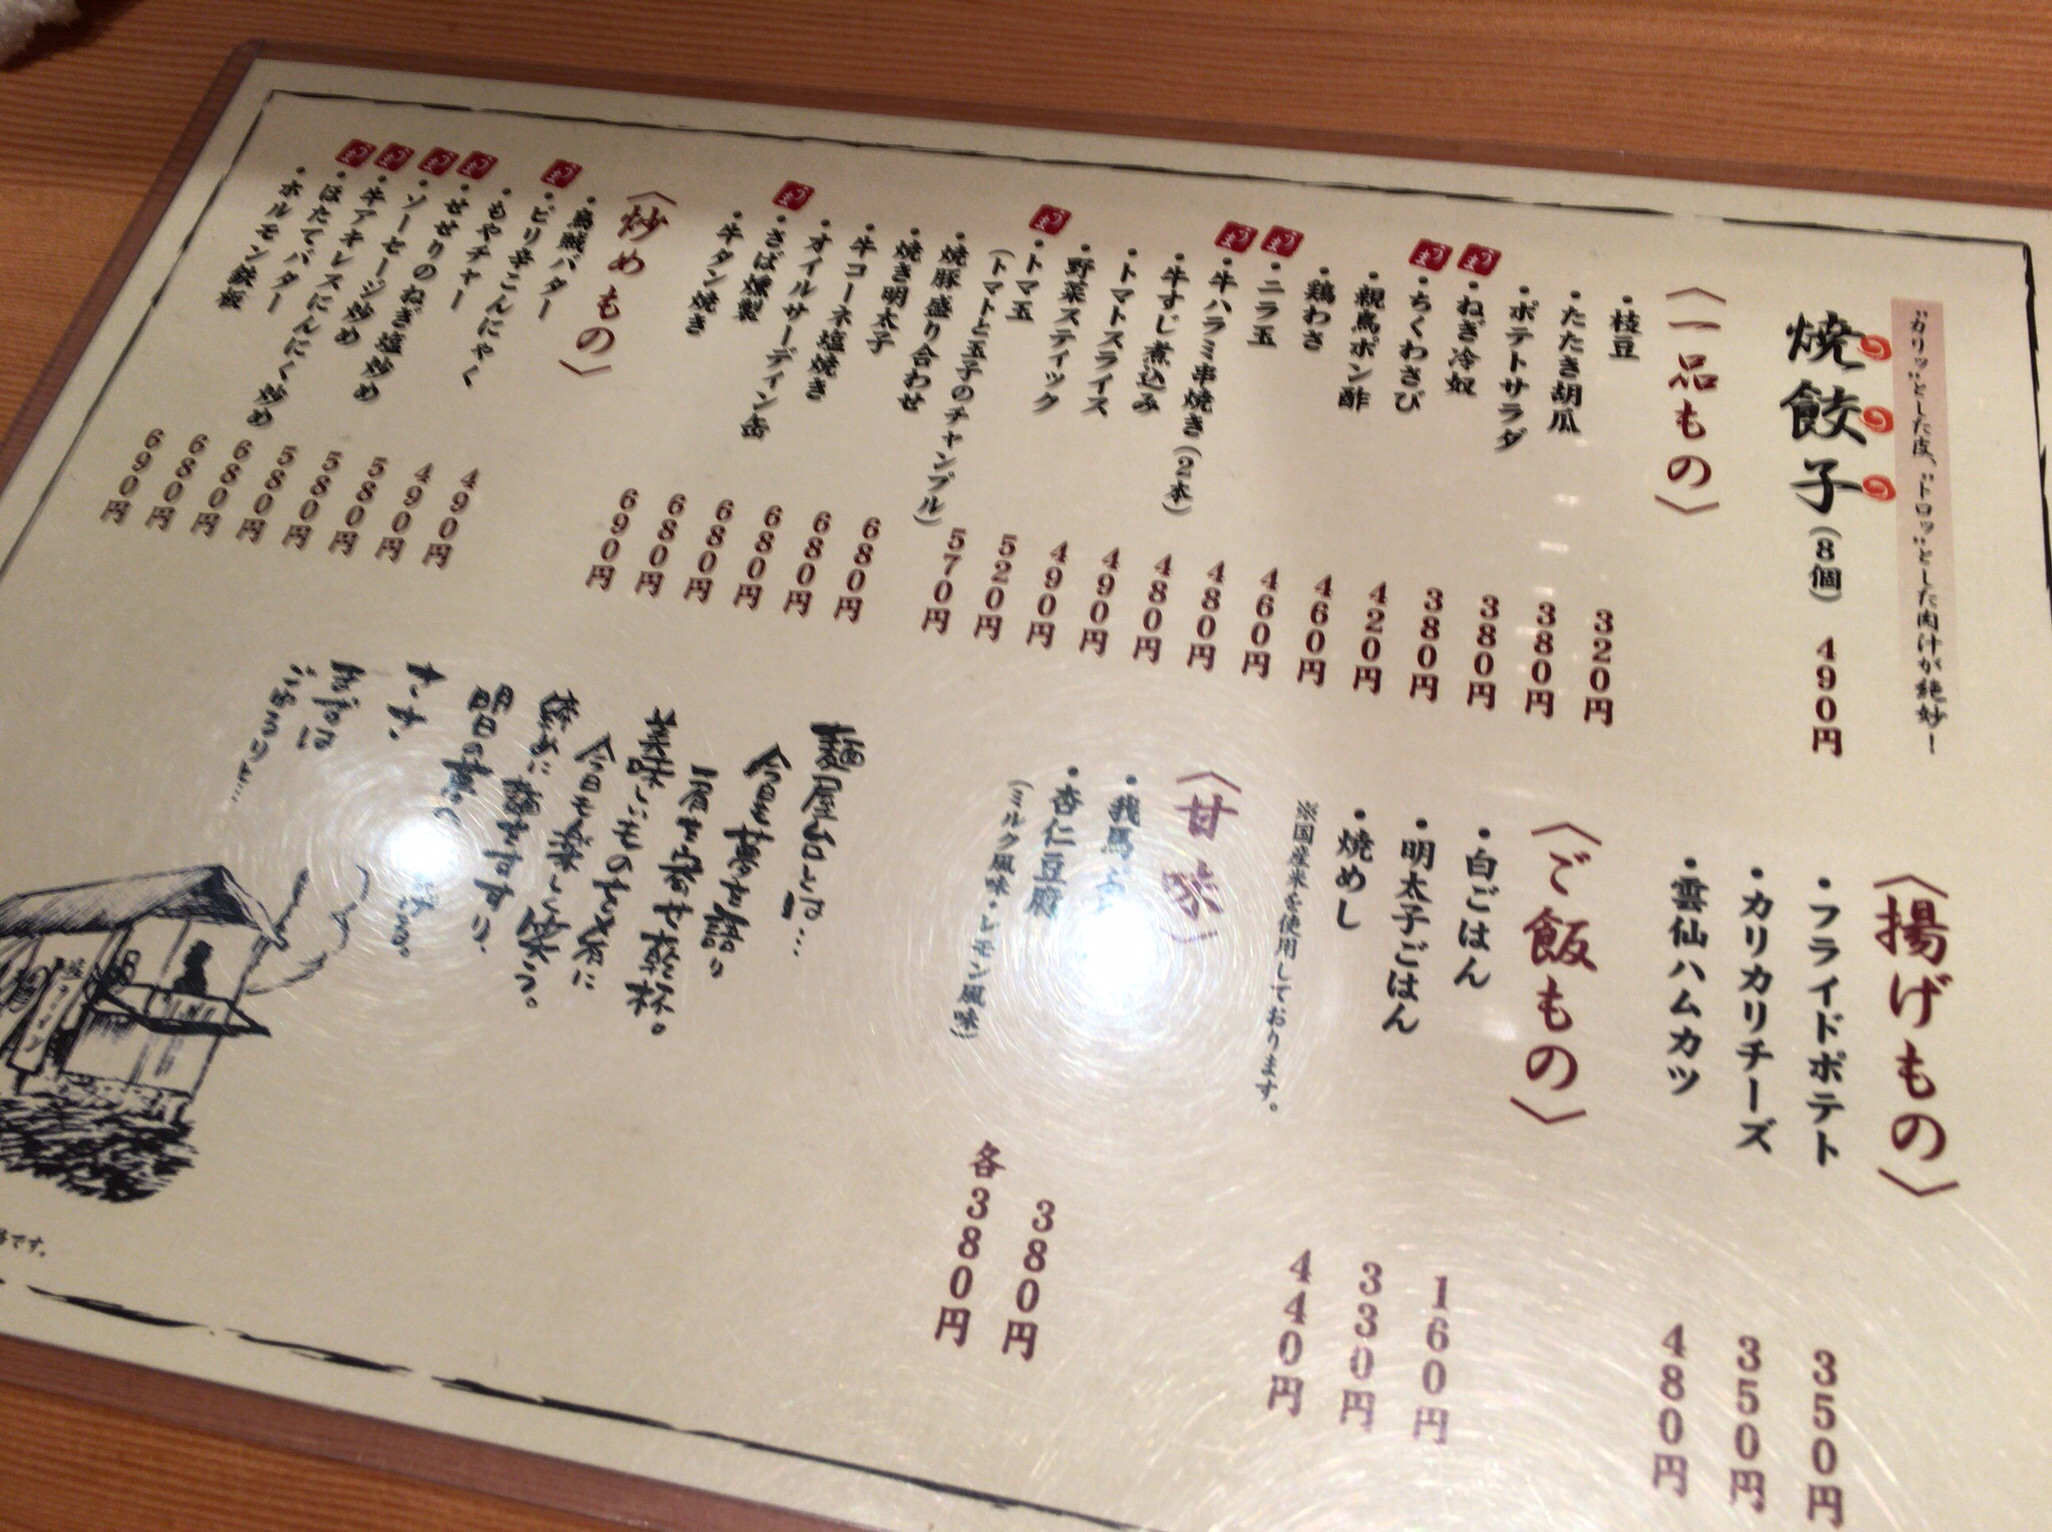 "カリッ"とした皮、"トロッ"とした肉汁が絶妙!
焼餃子(8個) 490円
〈一品もの〉
・枝豆 320円
・たたき胡瓜 380円
・ポテトサラダ 380円
うま ・ねぎ冷奴 380円
うま ・ちくわさび 420円
・親鳥ポン酢 460円
・鶏わさ 460円
うま ・ニラ玉 480円
うま ・牛ハラミ串焼き(2本) 480円
・牛すじ煮込み 490円
・トマトスライス 490円
・野菜スティック 520円
うま ・トマ玉 570円
(トマトと玉子のチャンプル)
・焼豚盛り合わせ 680円
・焼き明太子 680円
・牛コーネ塩焼き 680円
・オイルサーディン缶 680円
うま ・さば燻製 680円
・牛タン焼き 690円
〈炒めもの〉
・烏賊バター 490円
うま ・ピリ辛こんにゃく 490円
・もやチャー 580円
うま ・せせりのねぎ塩炒め 580円
うま ・ソーセージ炒め 580円
うま ・牛アキレスにんにく炒め 680円
うま ・ほたてバター 680円
・ホルモン鉄板 690円
〈揚げもの〉
・フライドポテト 350円
・カリカリチーズ 350円
・雲仙ハムカツ 480円
〈ご飯もの〉
・白ごはん 160円
・明太子ごはん 330円
・焼めし 440円
※国産米を使用しております。
〈甘味〉
・我馬 380円
・杏仁豆腐 各380円
(ミルク風味・レモン風味)
麺屋台とは…
今日を語り
肩を寄せ乾杯。
美味いものを肴に
今日を楽しく笑う。
締めに麺をすすり、
明日の
さぁ、
まずは
ごゆるりと…
です。